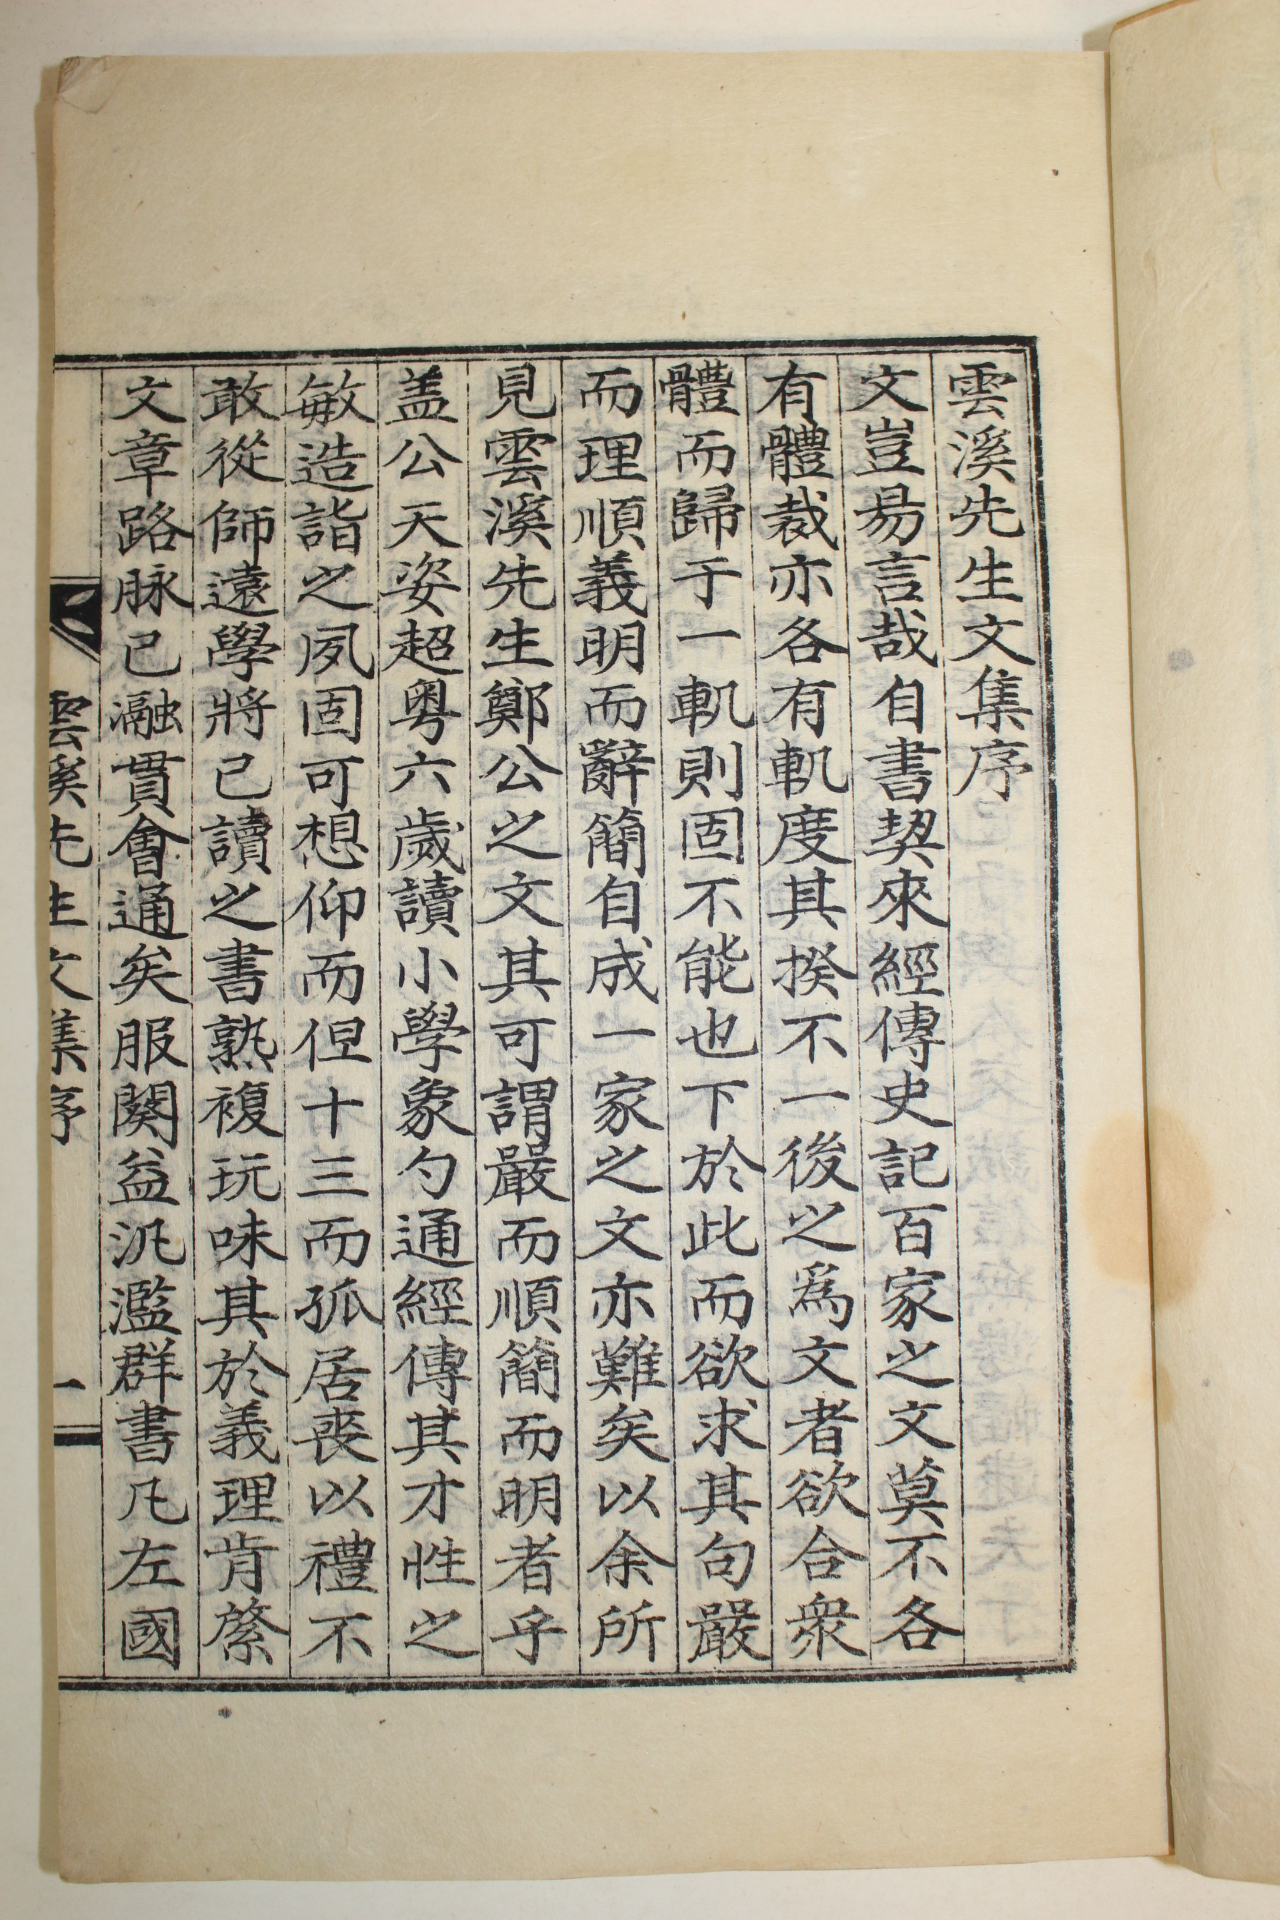 雲溪先生文集序
文豈易言哉自書契來經傳史記百家之文莫不各
有體裁亦各有軌度其揆不一後之爲文者欲合衆
體而歸于一軌則固不能也下於此而欲求其句嚴
而理順義明而辭簡自成一家之文亦難矣以余所
見雲溪先生鄭公之文其可謂嚴而順簡而明者乎
盖公天姿超粤六歲讀小學象勺通經傳其才性之
敏造詣之夙固可想仰而但十三而孤居喪以禮不
敢從師遠學將已讀之書熟複玩味其於義理肯綮
文章路脉已瀜貫會通矣服闋益汎濫群書凡左國
雲溪先生文集序
一